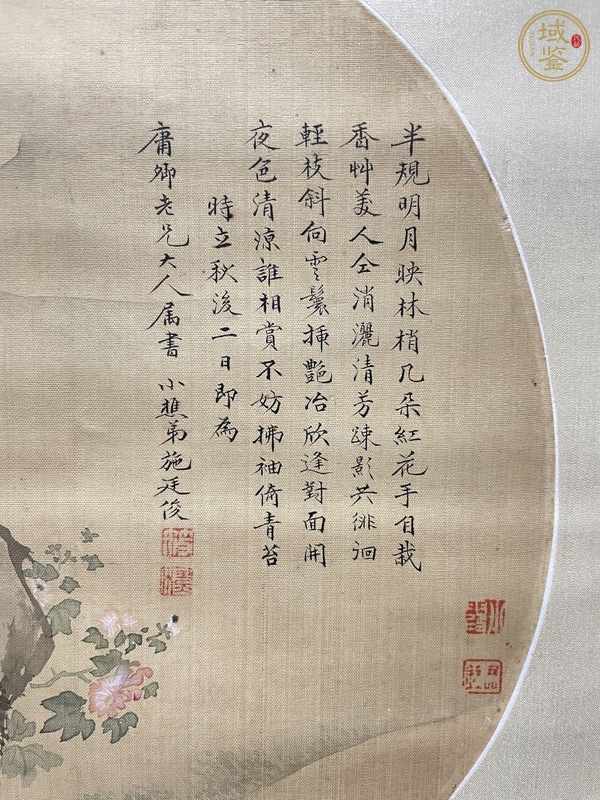 半規明月映林梢几朵紅花手自栽
香艸美人仝消灑清芳疎影共徘徊
輕枝斜向雲鬟揷艷冶欣逢對面開
夜色清涼誰相賞不妨拂袖倚青苔
時立秋後二日即為
庸卿老兄大人属書 小樵弟施廷俊
域鑒